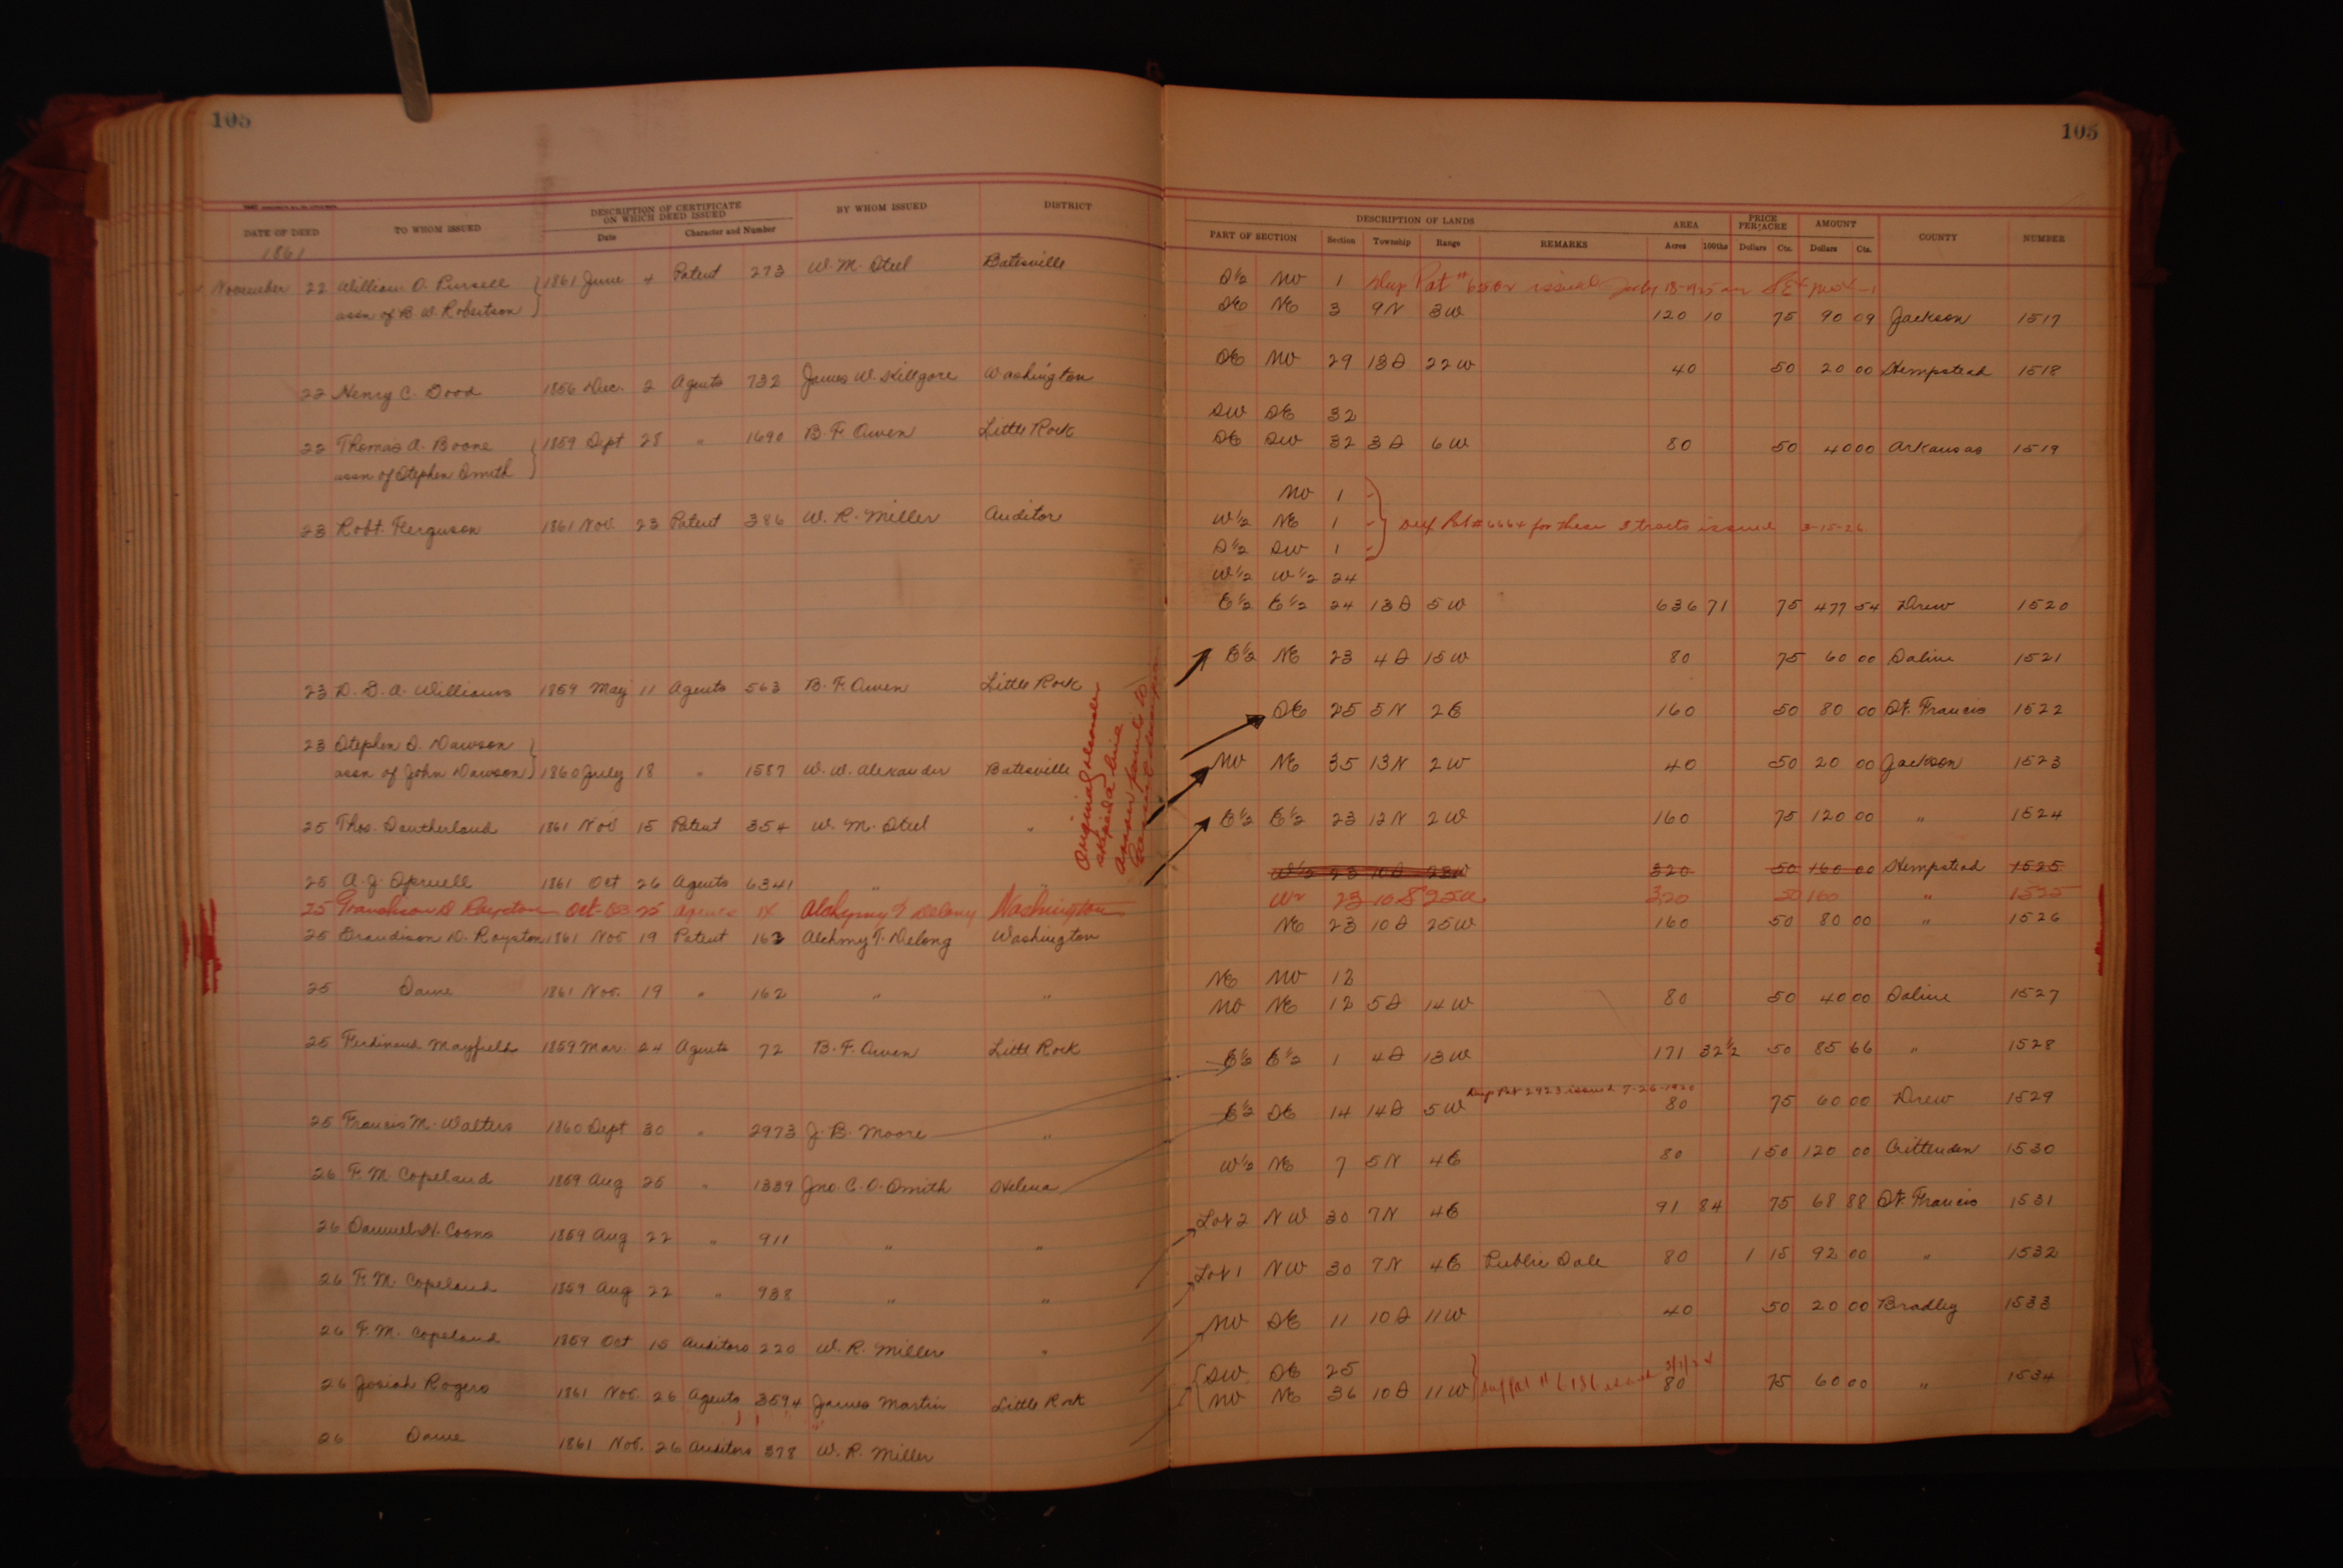 105
DATE OF DEED TO WHOM ISSUED DESCRIPTION OF CERTIFICATE ON WHICH DEED ISSUED BY WHOM ISSUED DISTRICT
Date Character and Number
1861
November 22 William O. Pursell } 1861 June 4 Patent 273 W. M. Steel Batesville
assn of B. W. Robertson
22 Henry C. Good 1856 Dec. 2 Agents 732 James W. Killgore Washington
22 Thomas A. Boone } 1859 Sept 28 " 1690 B. F. Owen Little Rock
assn of Stephen Smith
23 Robt. Ferguson 1861 Nov. 23 Patent 386 W. R. Miller Auditor
23 D. D. A. Williams 1859 May 11 Agents 563 B. F. Owen Little Rock
23 Stephen S. Dawson }
assn of John Dawson 1860 July 18 " 1587 W. W. Alexander Batesville
25 Thos. Southerland 1861 Nov 15 Patent 354 W. M. Steel "
25 A. J. Spruell 1861 Oct 26 Agents 6341 " "
25 Grandison D Royston Oct 25 Agents Washington
25 Grandison D. Royston 1861 Nov 19 Patent 163 Alchmy T. Delong Washington
25 Same 1861 Nov. 19 " 162 " "
25 Ferdinand Mayfield 1859 Mar. 24 Agents 72 B. F. Owen Little Rock
25 Francis M. Walters 1860 Sept 30 " 2973 J. B. Moore "
26 F. M. Copeland 1859 Aug 25 " 1339 Jno C. O. Smith Helena
26 Samuel H. Coons 1859 Aug 22 " 911 " "
26 F. M. Copeland 1859 Aug 22 " 938 " "
26 F. M. Copeland 1859 Oct 15 Auditors 220 W. R. Miller "
26 Josiah Rogers 1861 Nov. 26 Agents 3594 James Martin Little Rock
26 Same 1861 Nov. 26 Auditors 378 W. R. Miller
Original recorder
skipped a line
arrows points to
105
DESCRIPTION OF LANDS AREA PRICE PER ACRE AMOUNT COUNTY NUMBER
PART OF SECTION Section Township Range REMARKS Acres 100ths Dollars Cts. Dollars Cts.
S½ NW 1 Dup Pat # issued July
SE NE 3 9N 3W 120 10 75 90 09 Jackson 1517
SE NW 29 13S 22W 40 50 20 00 Hempstead 1518
SW SE 32
SE SW 32 3S 6W 80 50 40 00 Arkansas 1519
NW 1
W½ NE 1 Dup Pat # 6664 for these 3 tracts issued 3-15-26
S½ SW 1
W½ W½ 24
E½ E½ 24 13S 5W 636 71 75 477 54 Drew 1520
E½ NE 23 4S 15W 80 75 60 00 Saline 1521
SE 25 5N 2E 160 50 80 00 St. Francis 1522
NW NE 35 13N 2W 40 50 20 00 Jackson 1523
E½ E½ 23 12N 2W 160 75 120 00 " 1524
W½ 23 10S 23W 320 50 160 00 Hempstead 1525
W½ 23 10S 25W 320 50 160 " 1525
NE 23 10S 25W 160 50 80 00 " 1526
NE NW 12
NW NE 12 5S 14W 80 50 40 00 Saline 1527
E½ E½ 1 4S 13W 171 32½ 50 85 66 " 1528
Dup Pat 2923 issued 7-26-1920
E½ SE 14 14S 5W 80 75 60 00 Drew 1529
W½ NE 7 5N 4E 80 1 50 120 00 Crittenden 1530
Lot 2 NW 30 7N 4E 91 84 75 68 88 St Francis 1531
Lot 1 NW 30 7N 4E Public Sale 80 1 15 92 00 " 1532
NW SE 11 10S 11W 40 50 20 00 Bradley 1533
SW SE 25
NW NE 36 10S 11W 80 75 60 00 " 1534